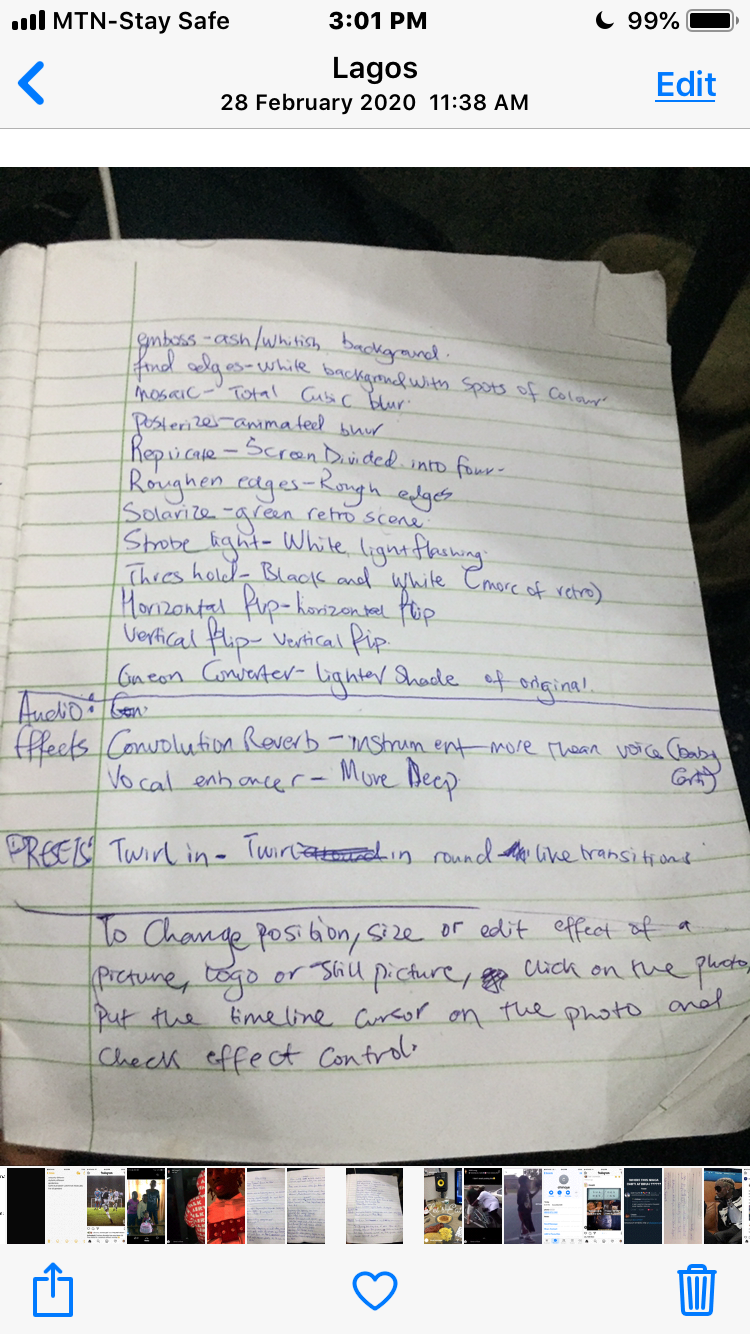 MTN-Stay Safe 3:01 PM 99%
Lagos
28 February 2020 11:38 AM
Edit
emboss-ash/whitish background.
find edges-white backgrond with spots of colour
mosaic- Total Cubic blur.
Posterizes-animated blur
Replicate - Screen Divided into four-
Roughen edges-Rough edges
Solarize-green retro scene.
Strobe light- White lightflashing.
Threshold- Black and White (more of retro)
Horizontal flip-horizontal flip
Vertical flip- vertical fip.
Converter- lighter shade of original.
Audio:
Effects Convolution Reverb - instrument more than voice (baby
Vocal enhancer - More Deep
PRESETS: Twirl in- Twirl in round like transitions
To Change position, size or edit effect of a
picture, logo or still picture, click on the photo,
put the timeline cursor on the photo and
check effect control.